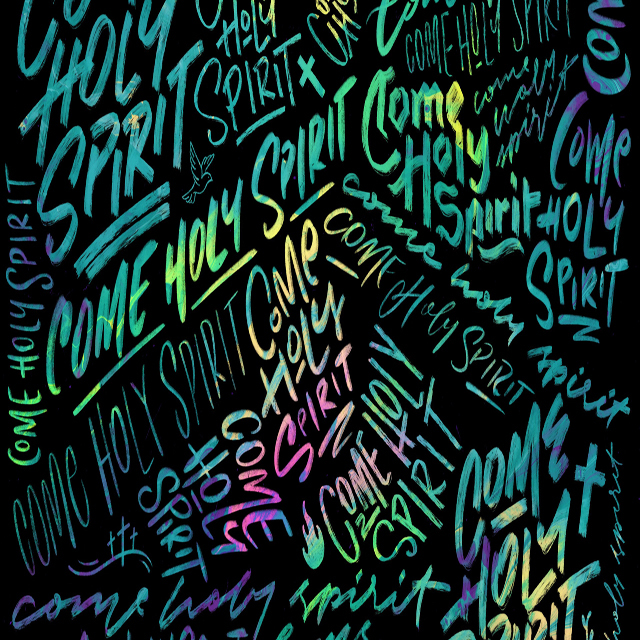 HOLY
SPIRIT
HOLY
SPIRIT
COME HOLY SPIRIT
come
holy
spirit
Come
Holy
Spirit
COME
HOLY
SPIRIT
COME HOLY SPIRIT
COME HOLY SPIRIT
some holy
spirit
COME HOLY SPIRIT
COME
HOLY
SPIRIT
COME HOLY SPIRIT
COME
HOLY
SPIRIT
COME
HOLY
SPIRIT
COME
HOLY
SPIRIT
come holy spirit
holy spirit